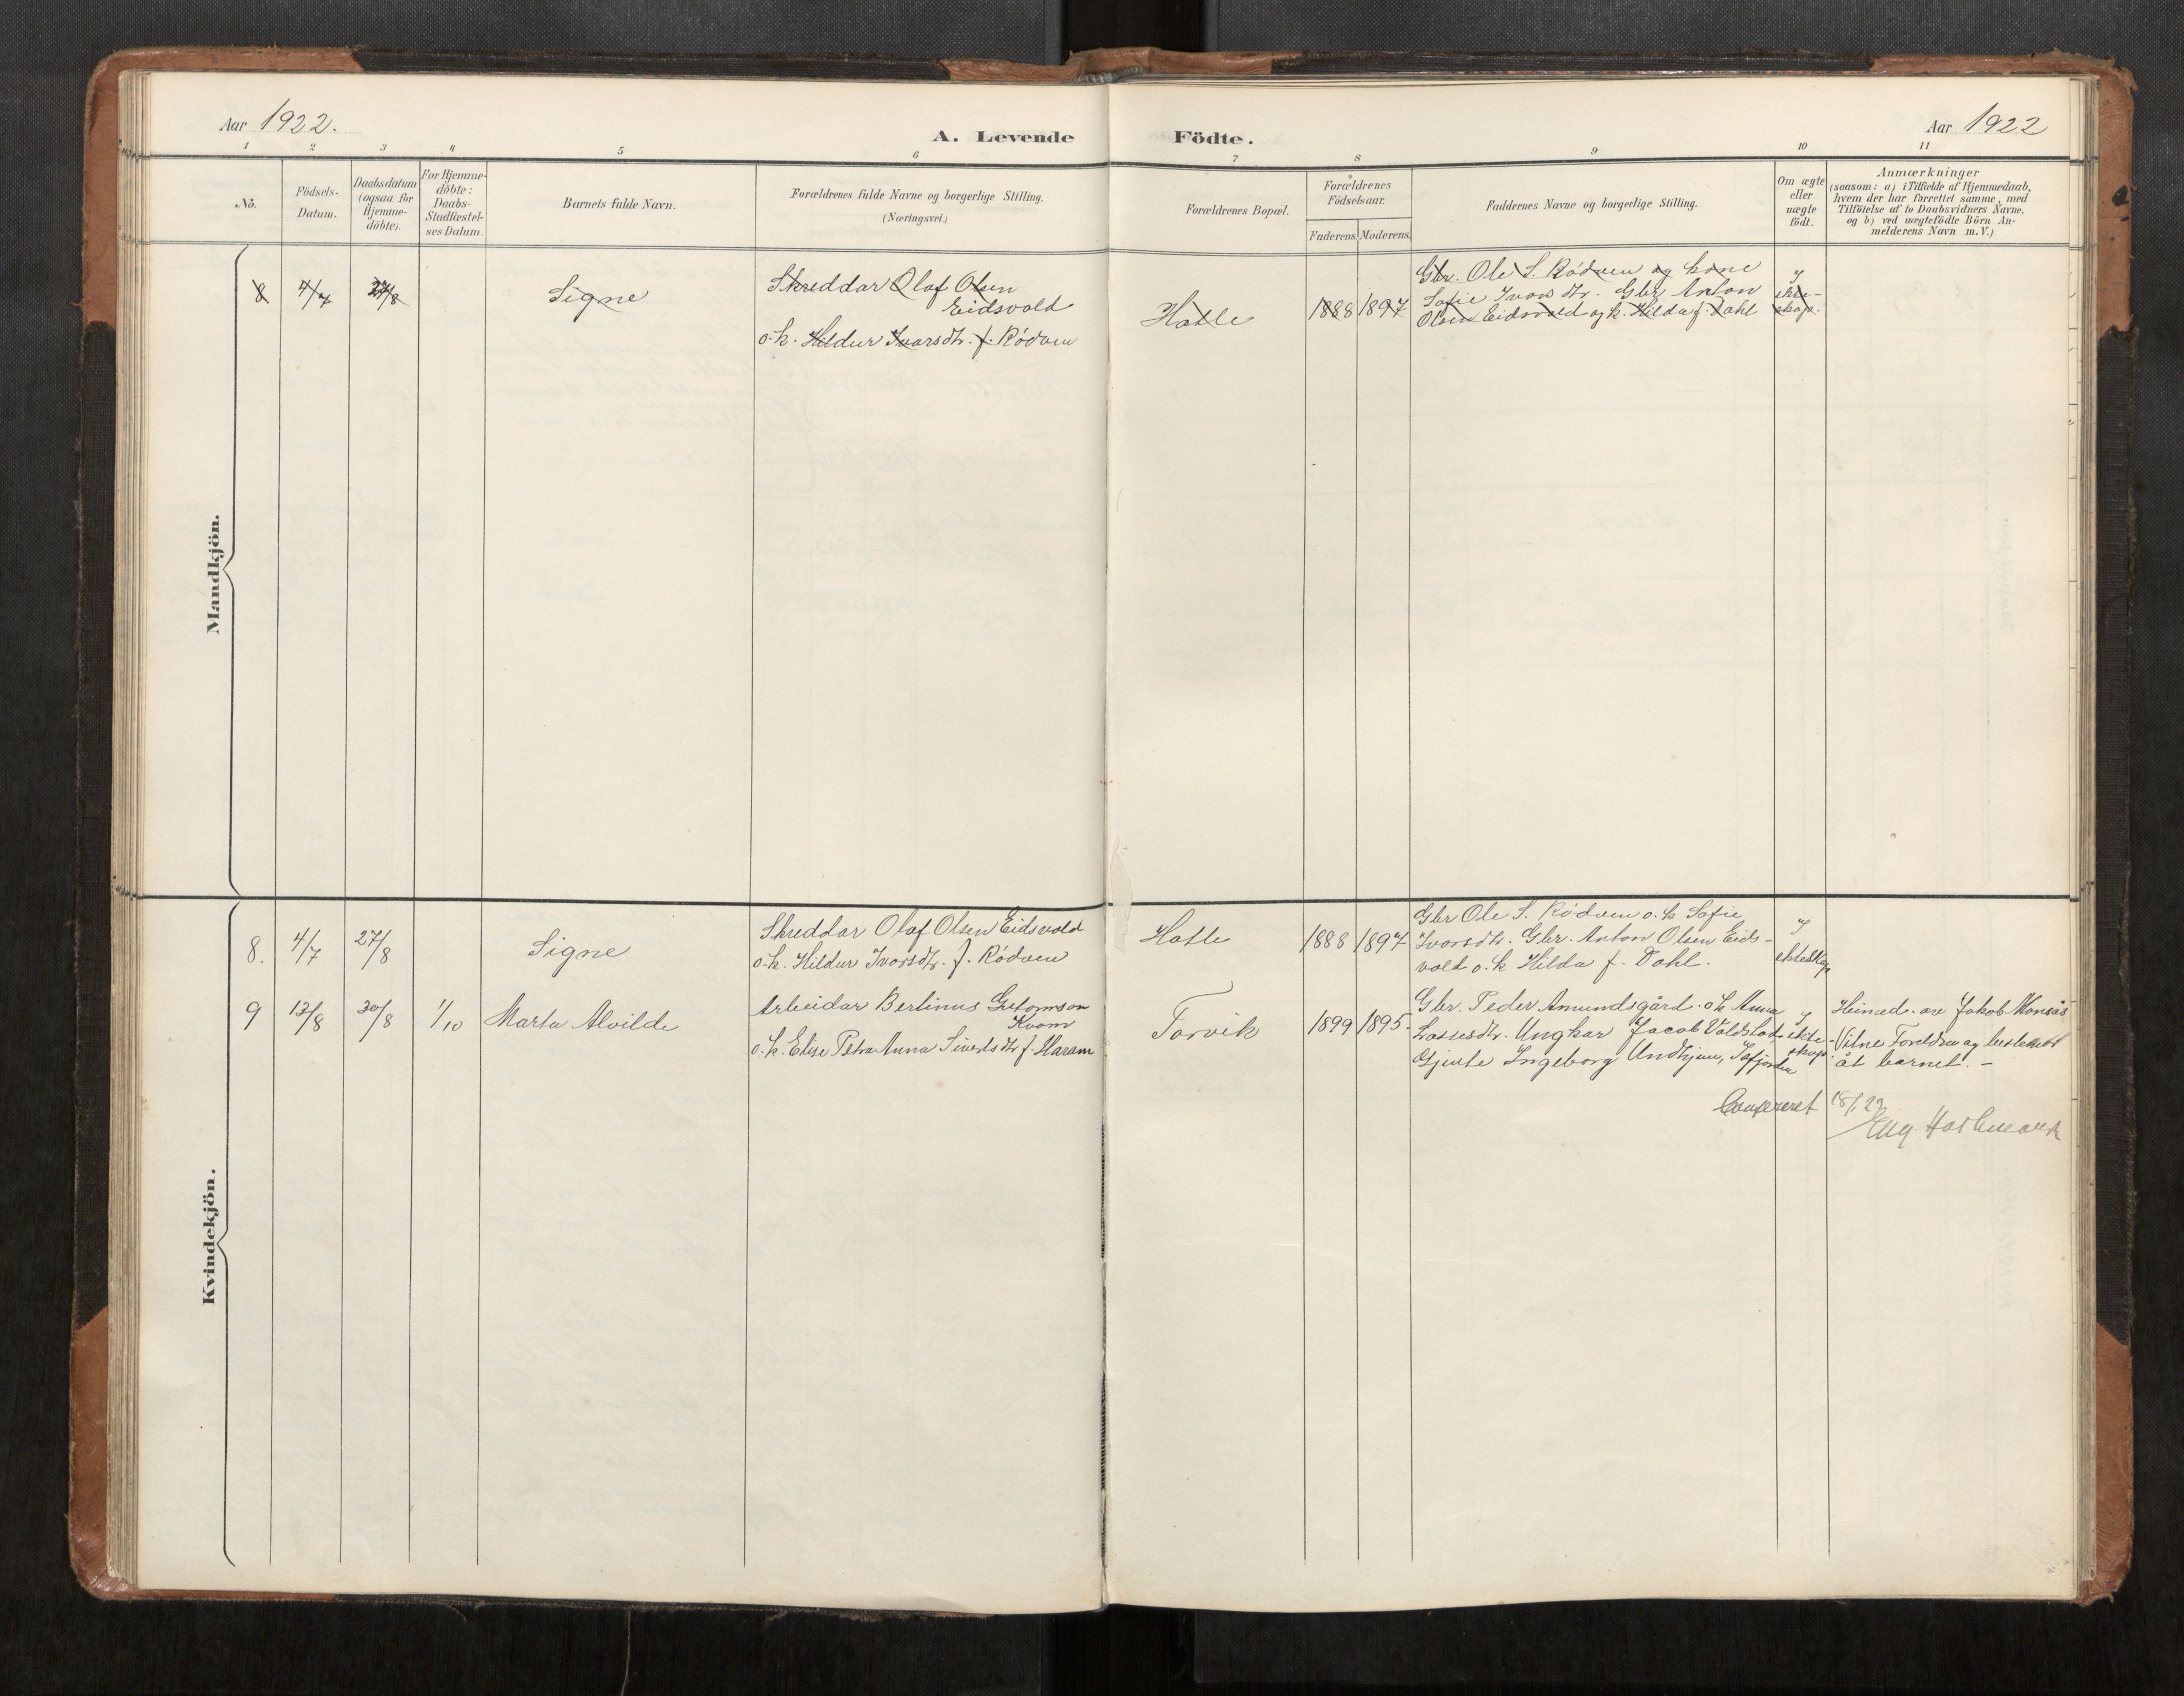 Aar 1922.
A. Levende Födte.
Aar 1922
1 2 3 4 5 6 7 8 9 10 11
No.
Födsels-
Datum.
Daabsdatum
(ogsaa for
Hjemme-
döbte).
For Hjemme-
döbte:
Daabs-
Stadfæstel-
ses Datum.
Barnets fulde Navn.
Forældrenes fulde Navne og borgerlige Stilling.
(Næringsvei.)
Forældrenes Bopæl.
Forældrenes
Födselsaar.
Faderens. Moderens.
Faddernes Navne og borgerlige Stilling.
Om ægte
eller
uægte
födt.
Anmærkninger
(saasom: a) i Tilfælde af Hjemmedaab,
hvem der har forrettet samme, med
Tilföielse af to Daabsvidners Navne,
og b) ved uægtefödte Börn An-
melderens Navn m. V.)
Mandkjön.
8 4/7 27/8 Signe
Skreddar Olaf Olsen
Eidsvold
o. k. Hildur Ivarsdtr. f. Rödven
Hatle
1888 1897
Gbr. Ole S. Rödven og kone
Sofie Ivarsdtr. Gbr Anton
Olsen Eidsvold og k. Hilda f. Dahl
I
ekte-
skap.
Kvindekjön.
8. 4/7 27/8 Signe
Skreddar Olaf Olsen Eidsvold
o. k. Hildur Ivarsdtr. f. Rödven
Hatle
1888 1897
Gbr Ole S. Rödven o. k Sofie
Ivarsdtr. Gbr. Anton Olsen Eids-
vold o. k Hilda f. Dahl.
I
ekteskap
9 13/8 30/8 1/10 Marta Alvilde
Arbeidar Bertinus
Kvam
o. k. Elise Petra Anna Sivertsdtr f. Haram
Torvik
1899 1895.
Gbr. Peder Amundsgård o k Anna
Lassesdtr. Ungkar Jacob Voldstad
Gjente Ingeborg Undhjem, Isfjorden
I
ekte-
skap.
Heimed. av Jakob Monsås
Vitne Foreldre og
åt barnet. -
Confereret 18/1 23